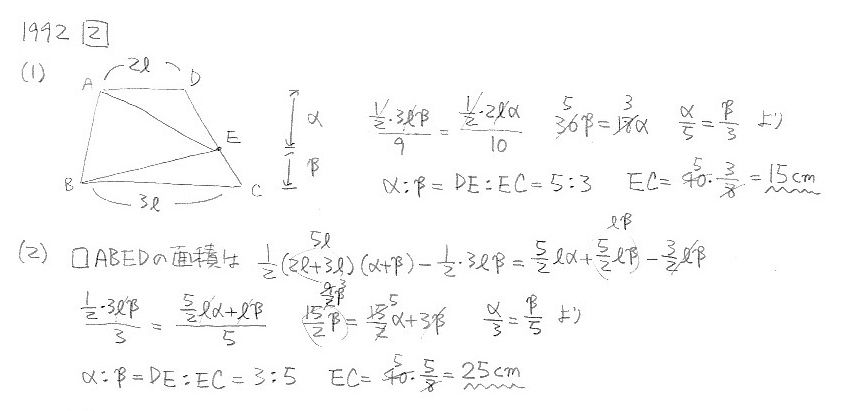 1992 [2]
(1)
2ℓ
A D
E
B C
3ℓ
α
β
(1/2・3ℓβ)/9 = (1/2・2ℓα)/10 30β=18α 5 3 α/5=β/3 より
α:β=DE:EC=5:3 EC=40・3/8=15cm 5
(2) □ABEDの面積は 1/2(2ℓ+3ℓ)(α+β)-1/2・3ℓβ=5/2ℓα+5/2ℓβ-3/2ℓβ 5ℓ ℓβ
(1/2・3ℓβ)/3 = (5/2ℓα+ℓβ)/5 15/2β=15/2α+3β 5 α/3=β/5 より
α:β=DE:EC=3:5 EC=40・5/8=25cm 5